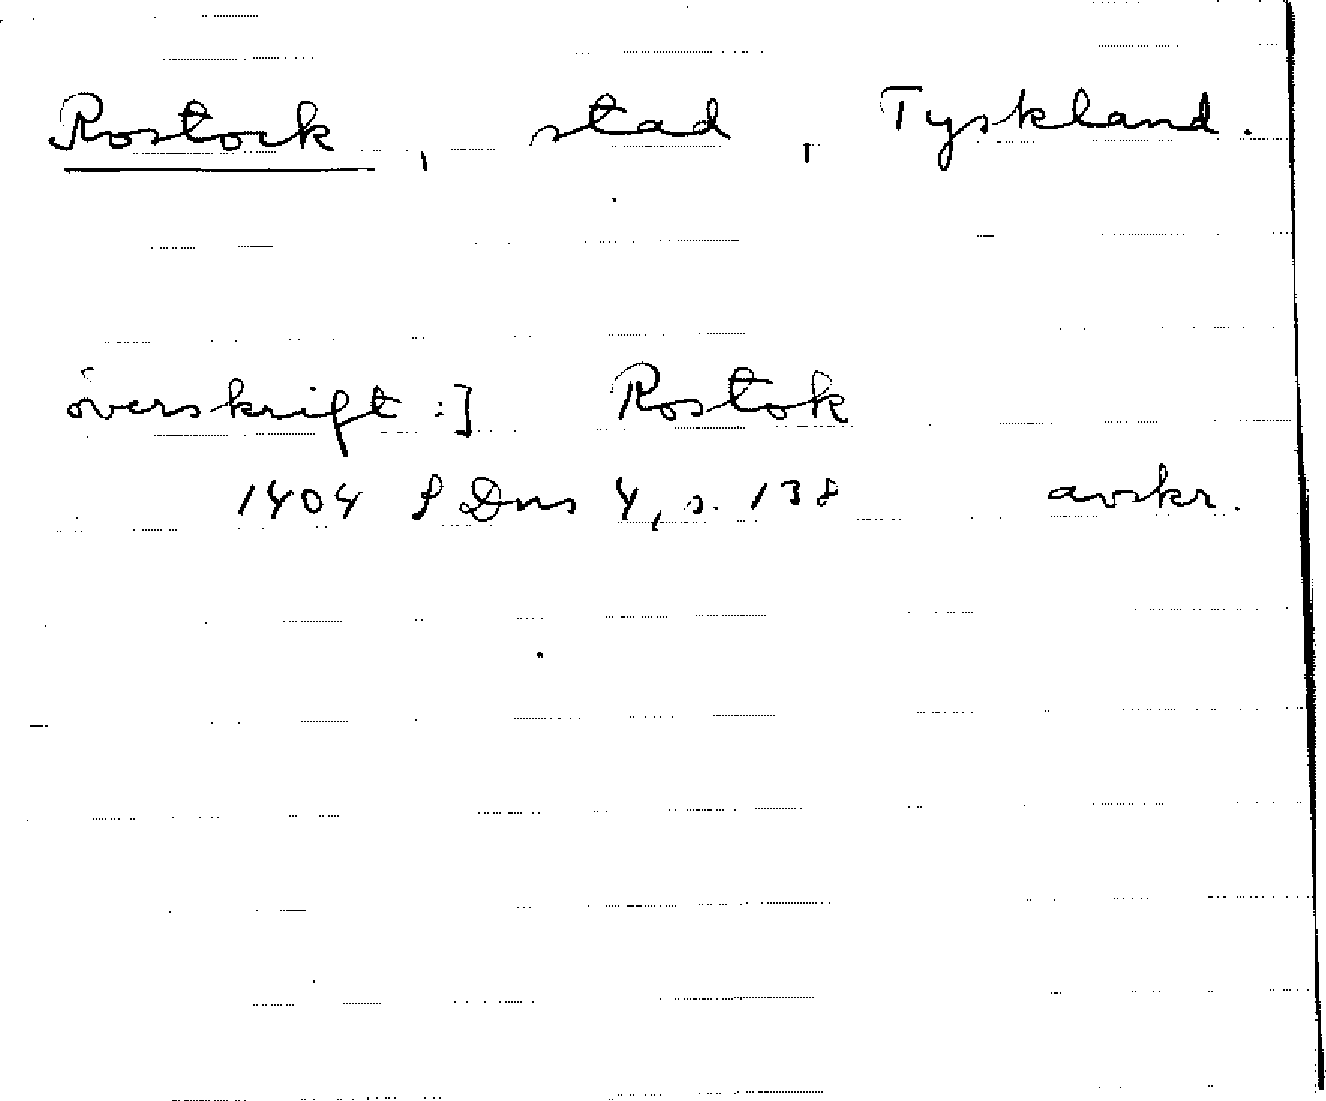 Rostock, stad, Tyskland.
överskrift:] Rostok
1404 SDns 4, s. 138 avskr.